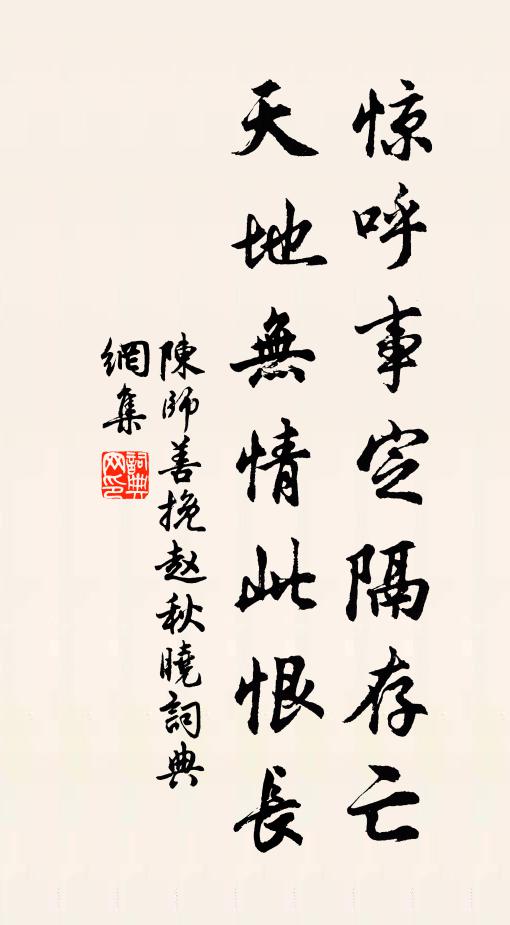 惊呼事定隔存亡
天地無情此恨長
陳師善挽赵秋曉詞典
網集
詞典網印